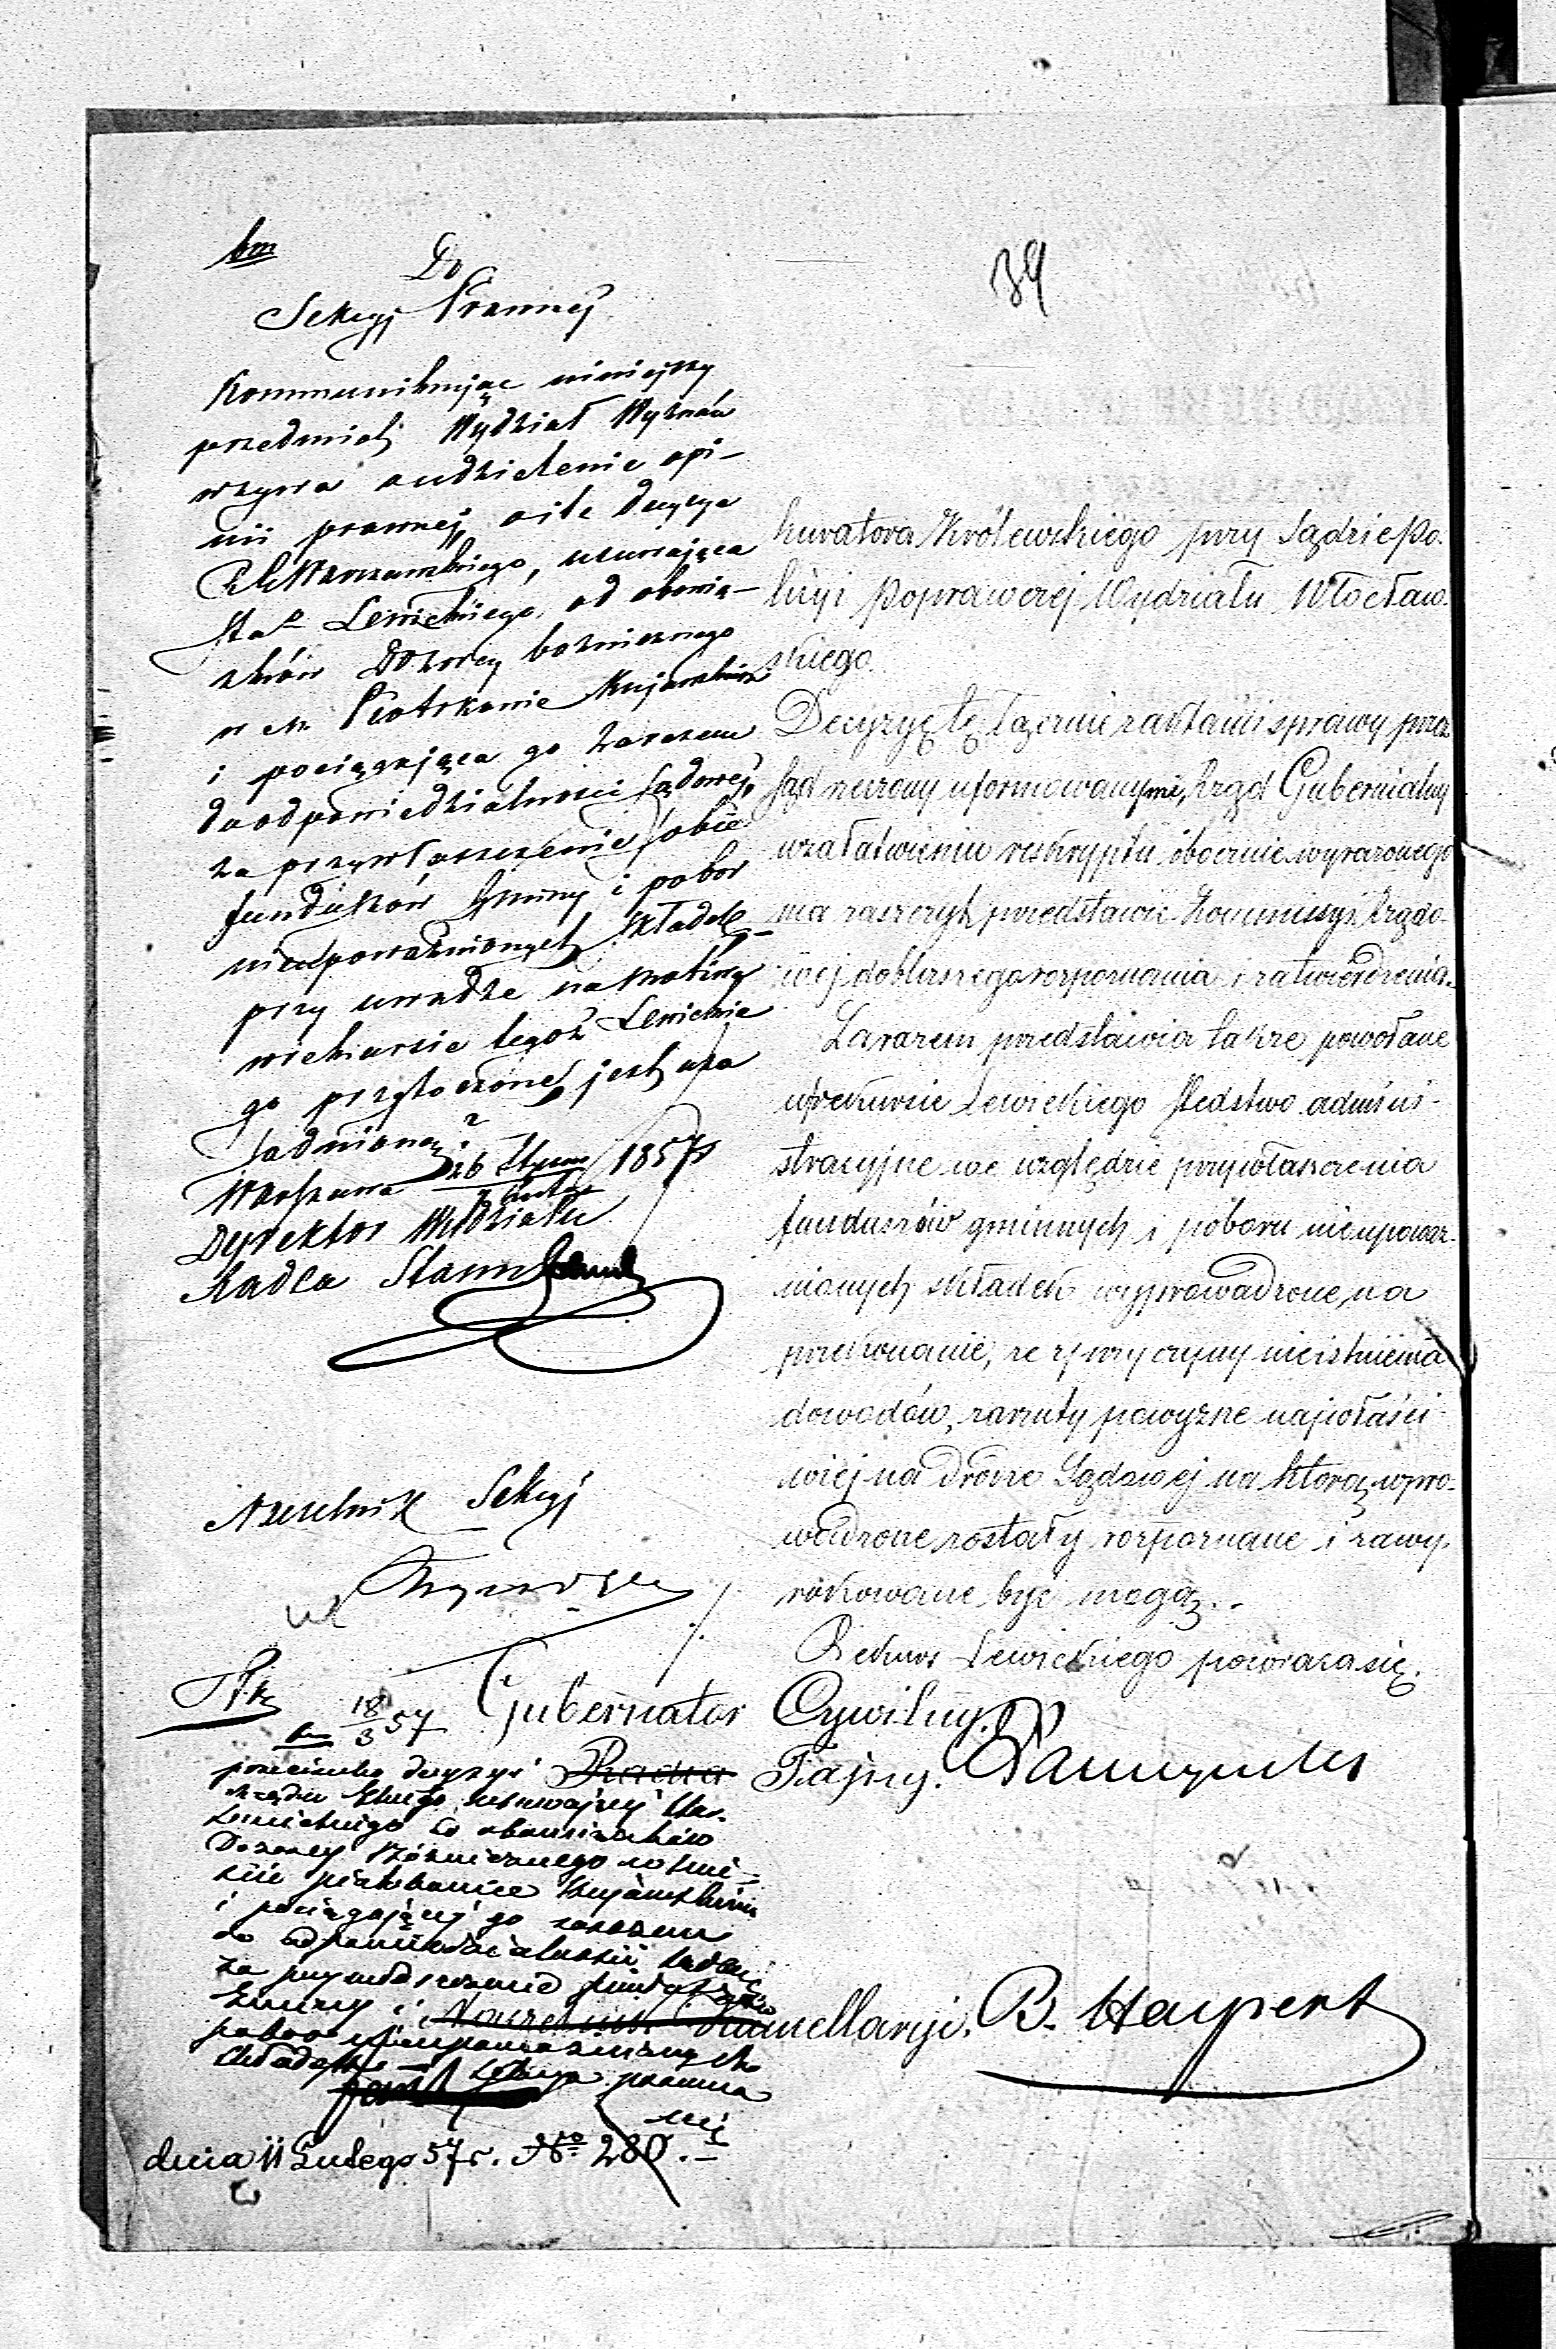 39
Do
Sekcyi Prawnej
Kommunikując niniejszy
przedmiot, Wydział Wyznań
wzywa o udzielenie opi-
nii prawnej, o ile decyzya
Warszawskiego, usuwająca
Sta Lewickiego, od obowią-
zków Dozorcy bożniczego
w m. Piotrkowie Kujawskim
i pociągająca go zarazem
do odpowiedzialności Sądowej,
za przywłaszczenie sobie
funduszów Gminy i pobór
nieupoważnionych składek
przy uwadze na motiwa
w rekursie tegoż Lewickie
go przytoczone, jest uza
sadnioną?
Warszawa 26 Stycz / 7 Lutego 1857 r
Dyrektor Wydziału
Radca Stanu
Naczelnik Sekcyi
18/3 57
przeciwko decyzyi
Rządu Gub usuwającej Star.
Lewickiego od obowiązków
Dozorcy Bóżniczego w mie-
ście Piotrkowie Kujawskim
i pociągającej go zarazem
do odpowiedzialności sądowej
za przywłaszczenie funduszów
Gminy i
poboru nieupoważnionych
składek — Sekcya prawna
dnia 11 Lutego 57 r. No 280.–
kuratora Królewskiego przy Sądzie Po-
licyi Poprawczej Wydziału Włocław-
skiego.
Decyzyę tę łącznie z aktami sprawy przez
Sąd rzeczony uformowanymi, Rząd Gubernialny
w załatwieniu reskryptu obocznie wyrażonego
ma zaszczyt przedstawić Kommissyi Rządo-
wej do bliższego rozpoznania i zatwierdzenia.
Zarazem przedstawia także powołane
w rekursie Lewickiego śledztwo admini-
stracyjne we względzie przywłaszczenia
funduszów gminnych i poboru nieupoważ-
nionych składek wyprowadzone, na
przekonanie, że z przyczyny nieistnienia
dowodów, zarzuty powyższe najwłaści-
wiej na drodze Sądowej na którą wpro-
wadzone zostały rozpoznane i zawy-
rokowane być mogą.-
Rekurs Lewickiego powraca się.
Gubernator Cywilny,
Radca Tajny.
Naczelnik Kancellaryi. B. Haypert